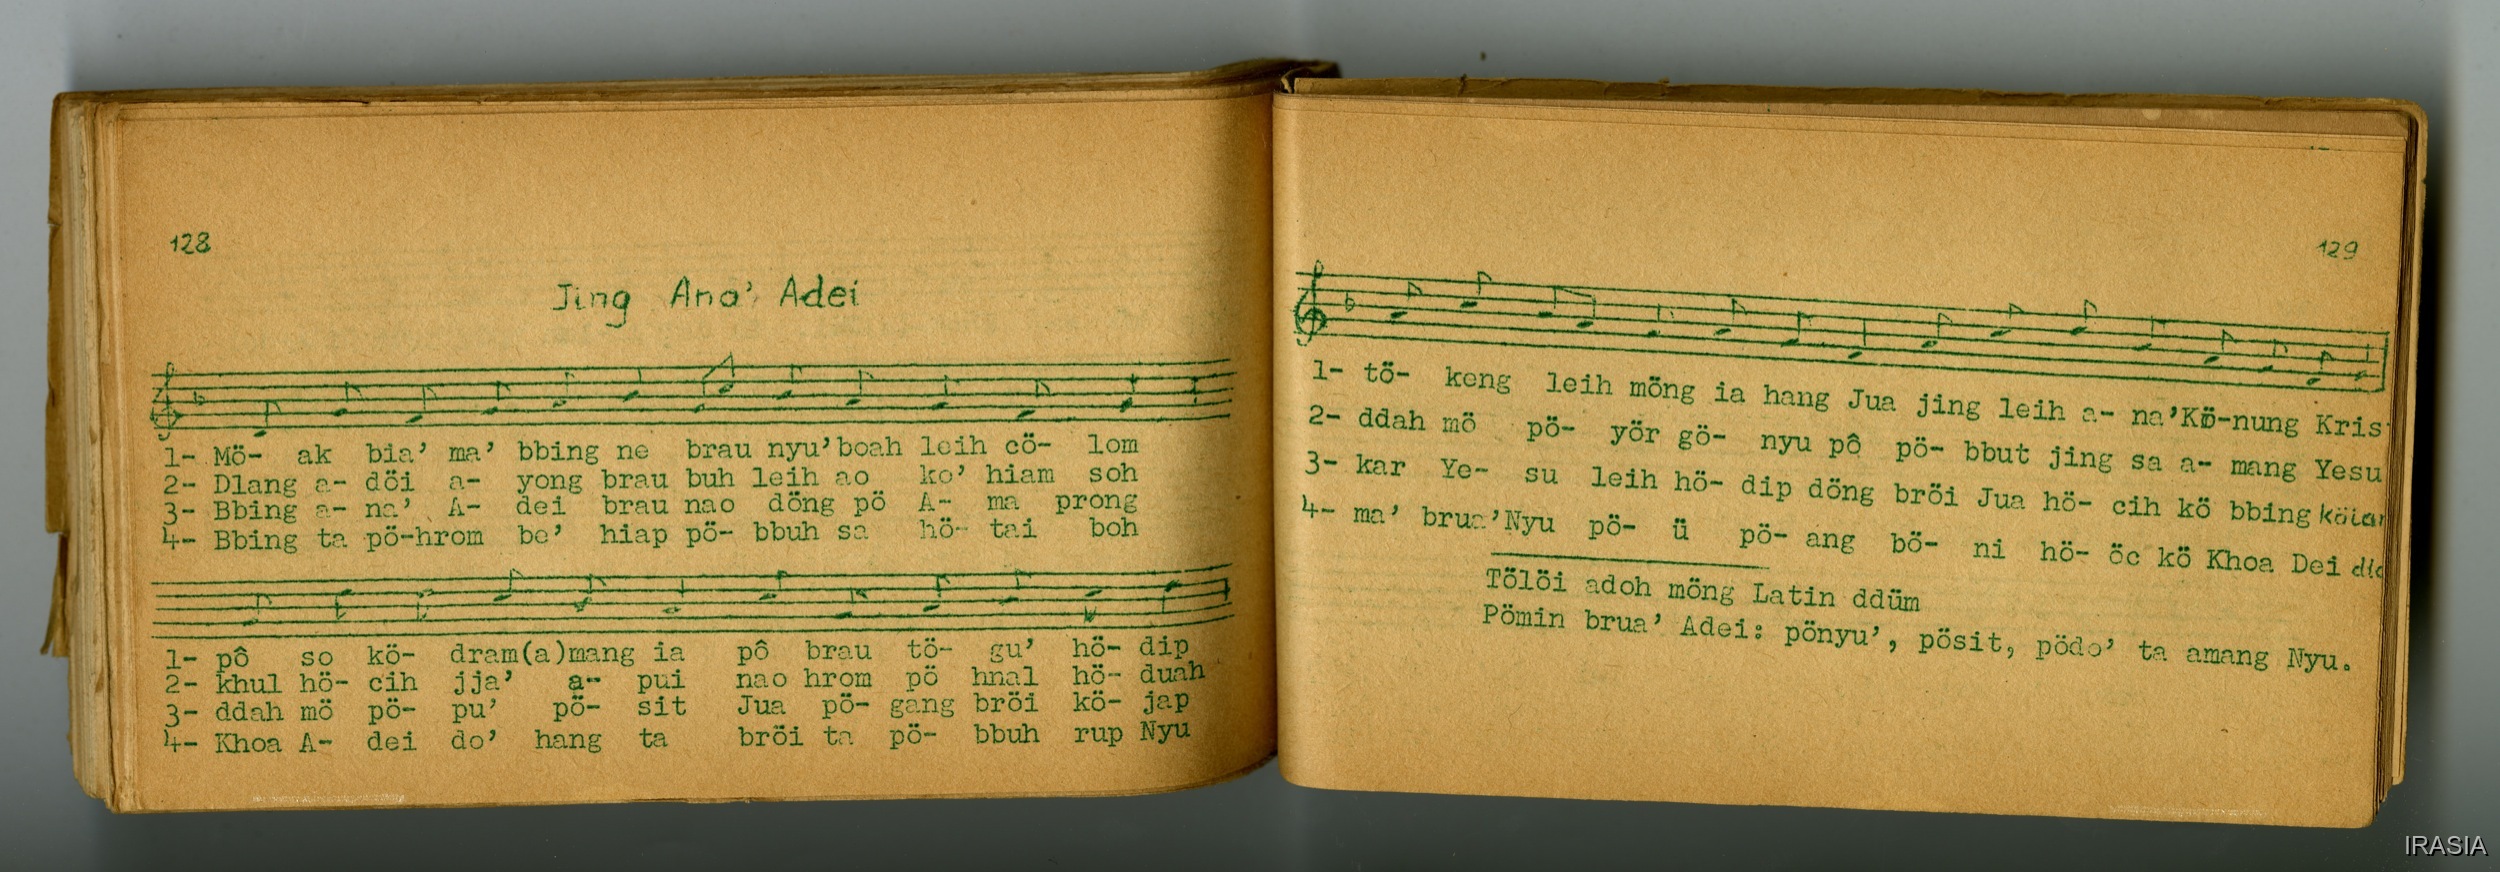 128
Jing Ana' Adei
1- Mö- ak bia' ma' bbing ne brau nyu' boah leih cö- lom
2- Dlang a- döi a- yong brau buh leih ao ko' hiam soh
3- Bbing a- na' A- dei brau nao döng pö A- ma prong
4- Bbing ta pö-hrom be' hiap pö- bbuh sa hö- tai boh
1- pô so kö- dram(a)mang ia pô brau tö- gu' hö- dip
2- khul hö- cih jja' a- pui nao hrom pö hnal hö- duah
3- ddah mö pö- pu' pö- sit Jua pö- gang bröi kö- jap
4- Khoa A- dei do' hang ta bröi ta pö- bbuh rup Nyu
129
1- tö- keng leih möng ia hang Jua jing leih a- na' Kö-nung Kris
2- ddah mö pö- yör gö- nyu pô pö- bbut jing sa a- mang Yesu
3- kar Ye- su leih hö- dip döng bröi Jua hö- cih kö bbing
4- ma' brua' Nyu pö- ü pö- ang bö- ni hö- öc kö Khoa Dei
Tölöi adoh möng Latin ddüm
Pömin brua' Adei: pönyu', pösit, pödo' ta amang Nyu.
IRASIA